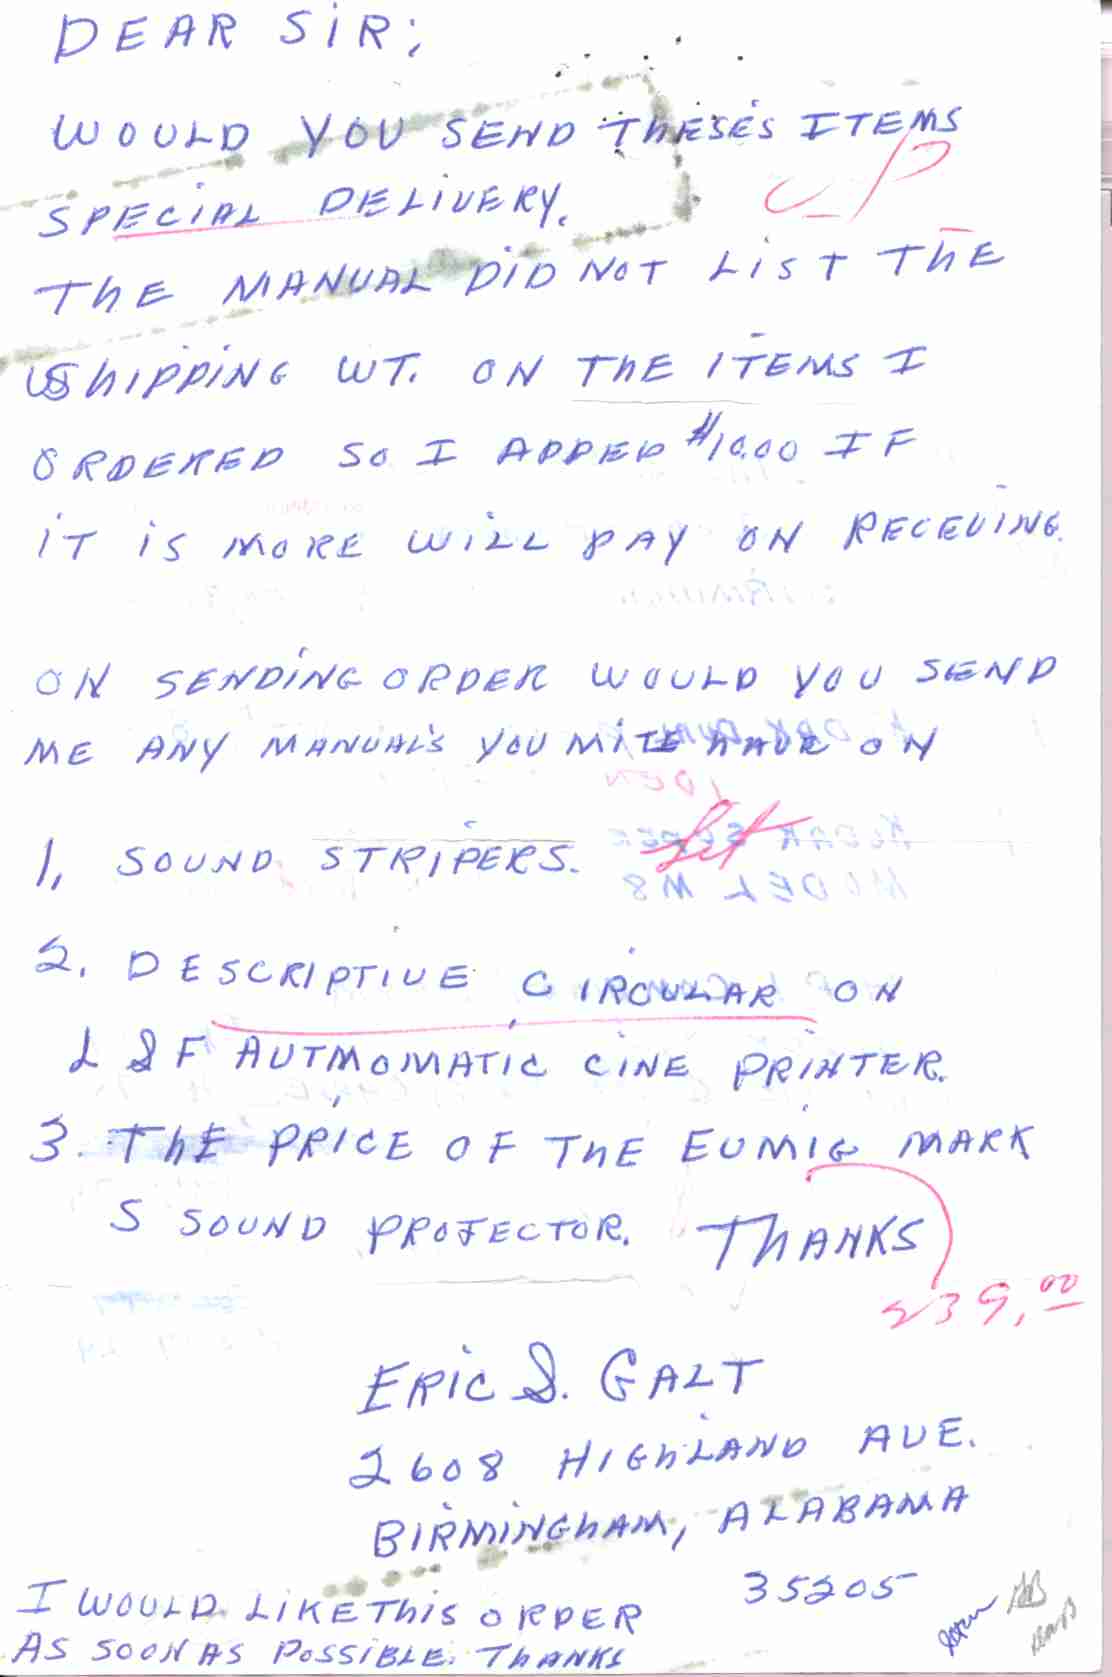 DEAR SIR;
WOULD YOU SEND THESES ITEMS
UP
SPECIAL DELIVERY.
THE MANUAL DID NOT LIST THE
SHIPPING WT. ON THE ITEMS I
ORDERED SO I ADDED $10.00 IF
IT IS MORE WILL PAY ON RECEVING.
ON SENDING ORDER WOULD YOU SEND
ME ANY MANUAL'S YOU MITE HAVE ON
1, SOUND STRIPERS.
2. DESCRIPTIVE CIRCULAR ON
L & F AUTMOMATIC CINE PRINTER.
3. THE PRICE OF THE EUMIG MARK
S SOUND PROJECTOR. THANKS
239.00
ERIC S. GALT
2608 HIGHLAND AVE.
BIRMINGHAM, ALABAMA
35205
I WOULD LIKE THIS ORDER
AS SOON AS POSSIBLE. THANKS